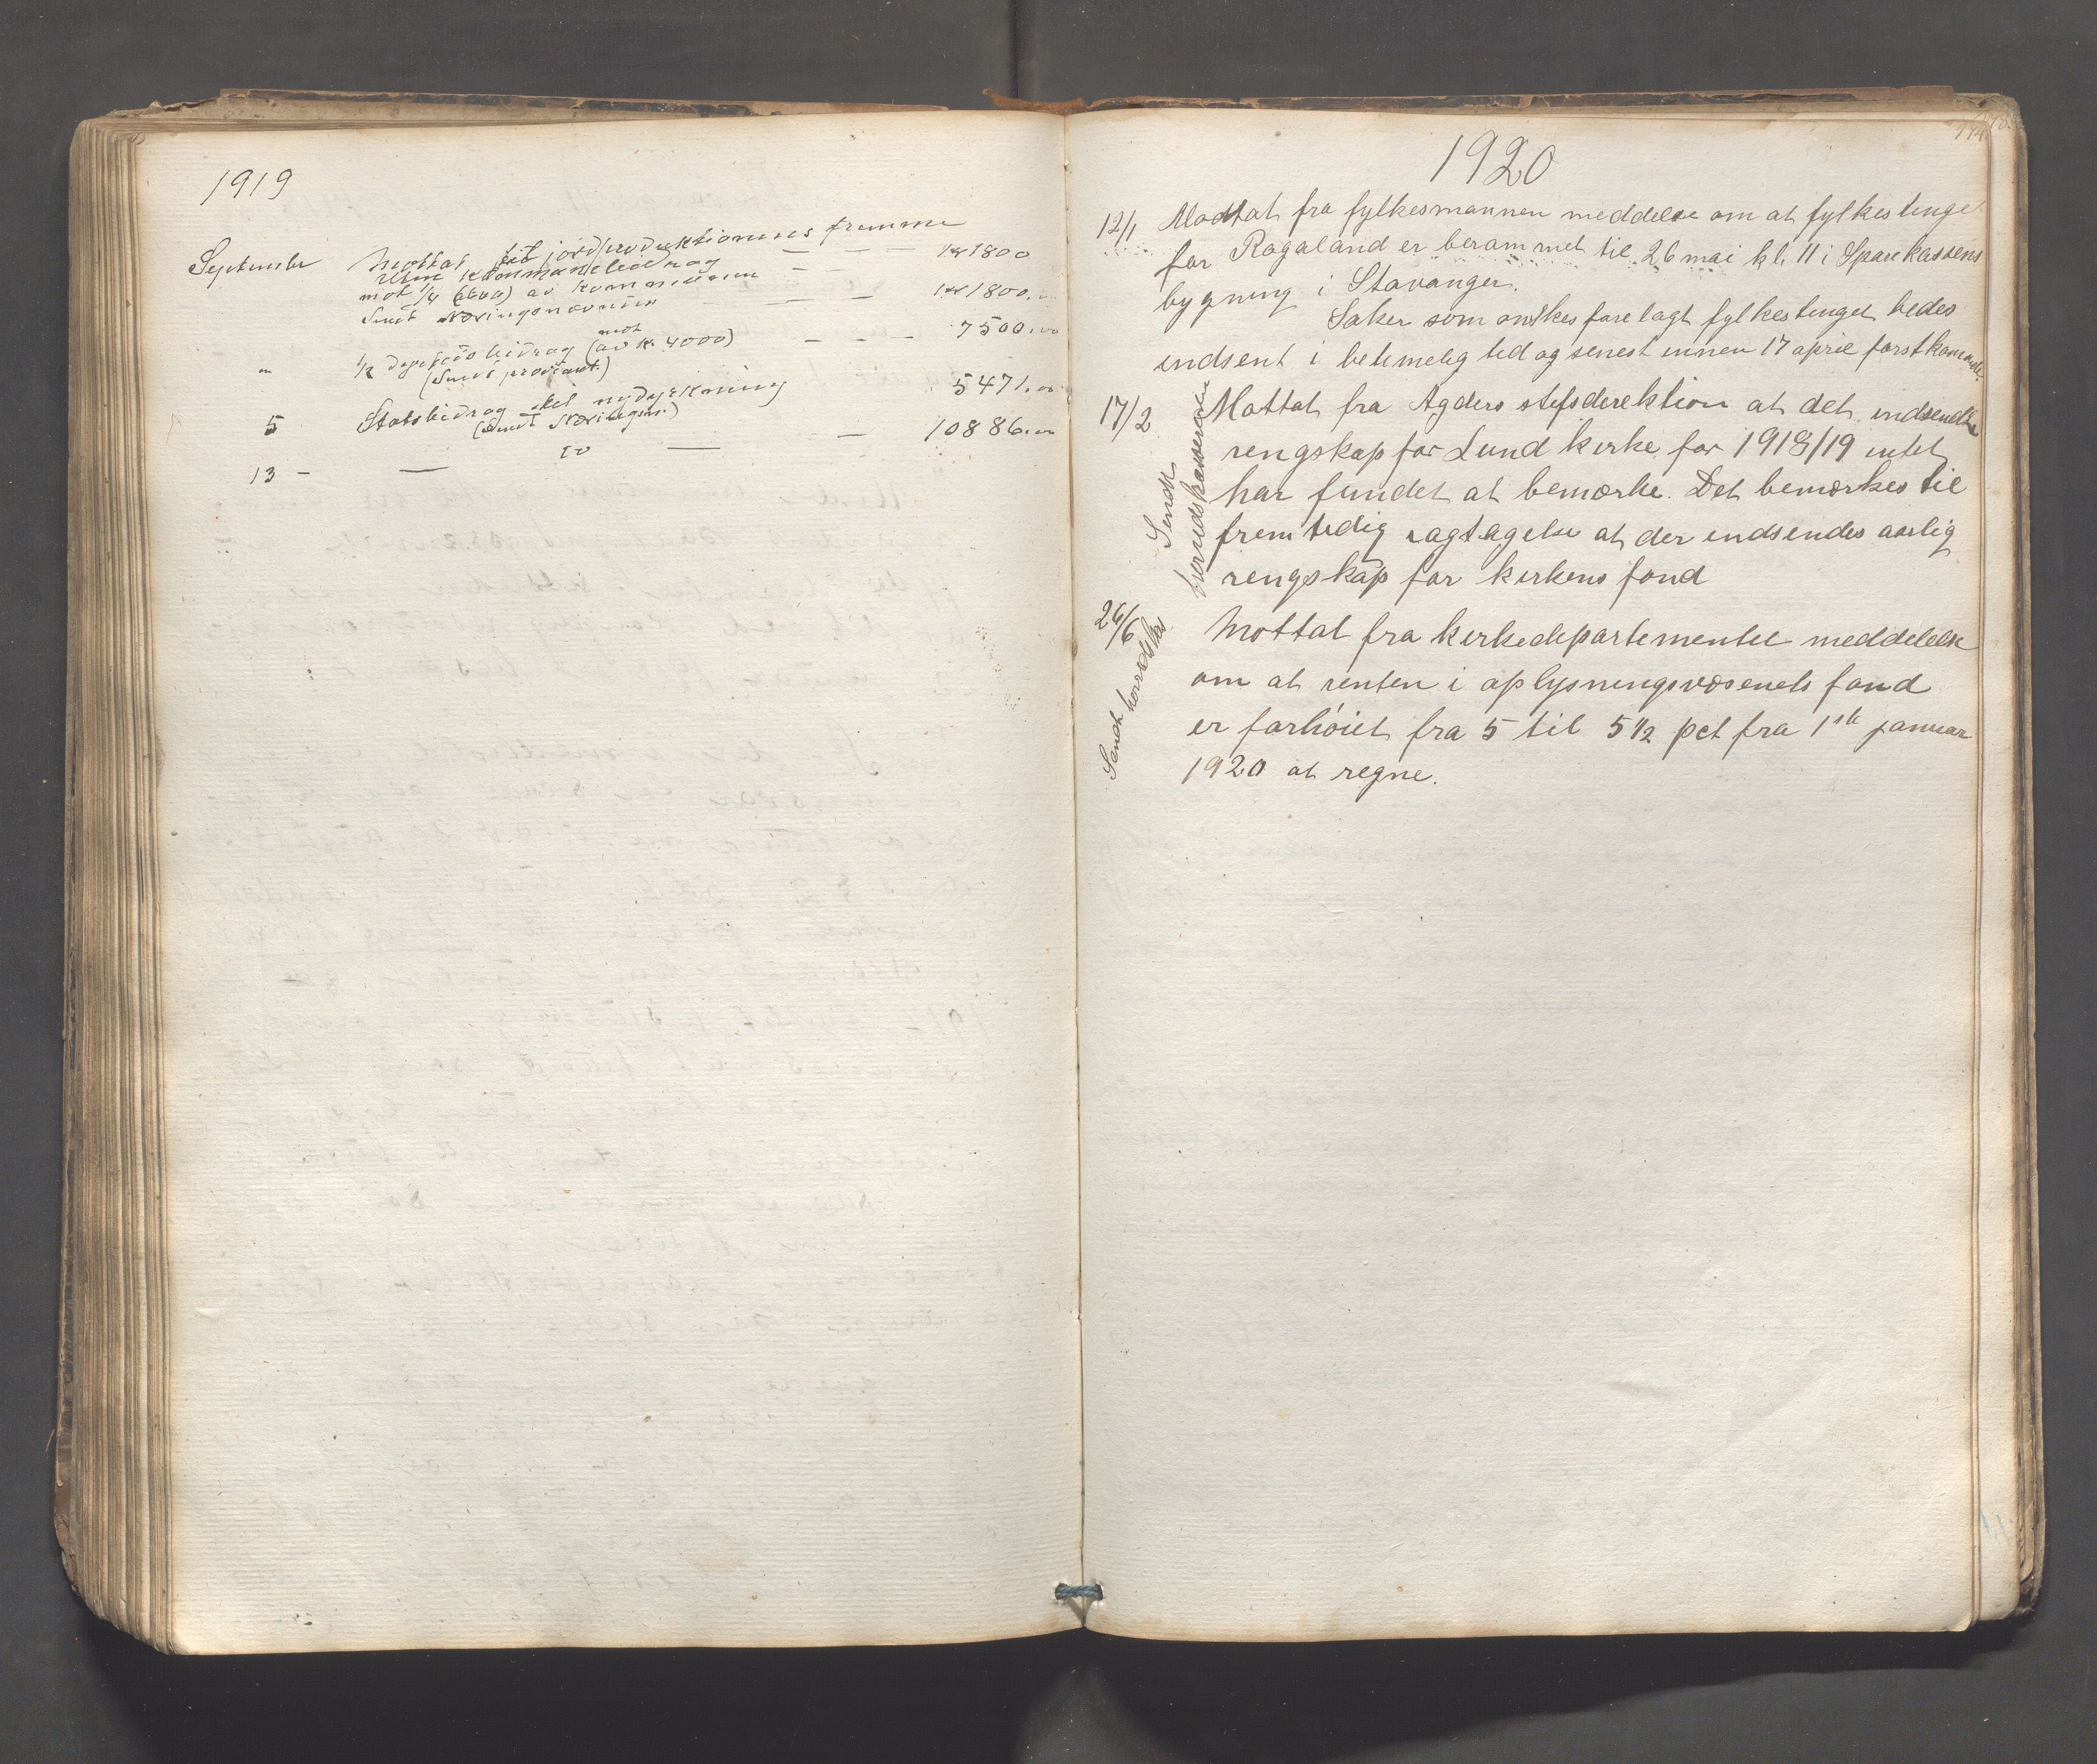 1919
September Mottat til jordproduktionens fremme
— — — kr 1800
mot 1/4 av kommunen — —
Sendt Næringsnævnden — — — kr 1800.00
" 1/2 bidrag (av mot kr. 4000) — — — 7500.00
(Sendt proviant.)
5 Statsbidrag til nydyrkning 5471.00
(Sendt Næringsn.)
13 — — do — — 10886.00
1920
12/1 Modtat fra fylkesmannen meddelse om at fylkestinge
for Rogaland er berammet til 26 mai kl. 11 i Sparekassens
bygning i Stavanger.
Saker som ønskes forelagt fylkestinget bedes
indsent i betimelig tid og senest innen 17 april førstkommende.
17/2 Mottat fra Agders stifsdirektion at det indsendte
rengskap for Lund kirke for 1918/19 intet
har fundet at bemerke. Det bemerkes til
fremtidig iagtagelse at der indsendes aarlig
rengskap for kirkens fond
Sendt
herredskasserer
26/6 Mottat fra kirkedepartementet meddelelse
om at renten i oplysningsvæsenets fond
er forhøiet fra 5 til 5 1/2 pct fra 1ste januar
1920 at regne.
Sendt herredskas